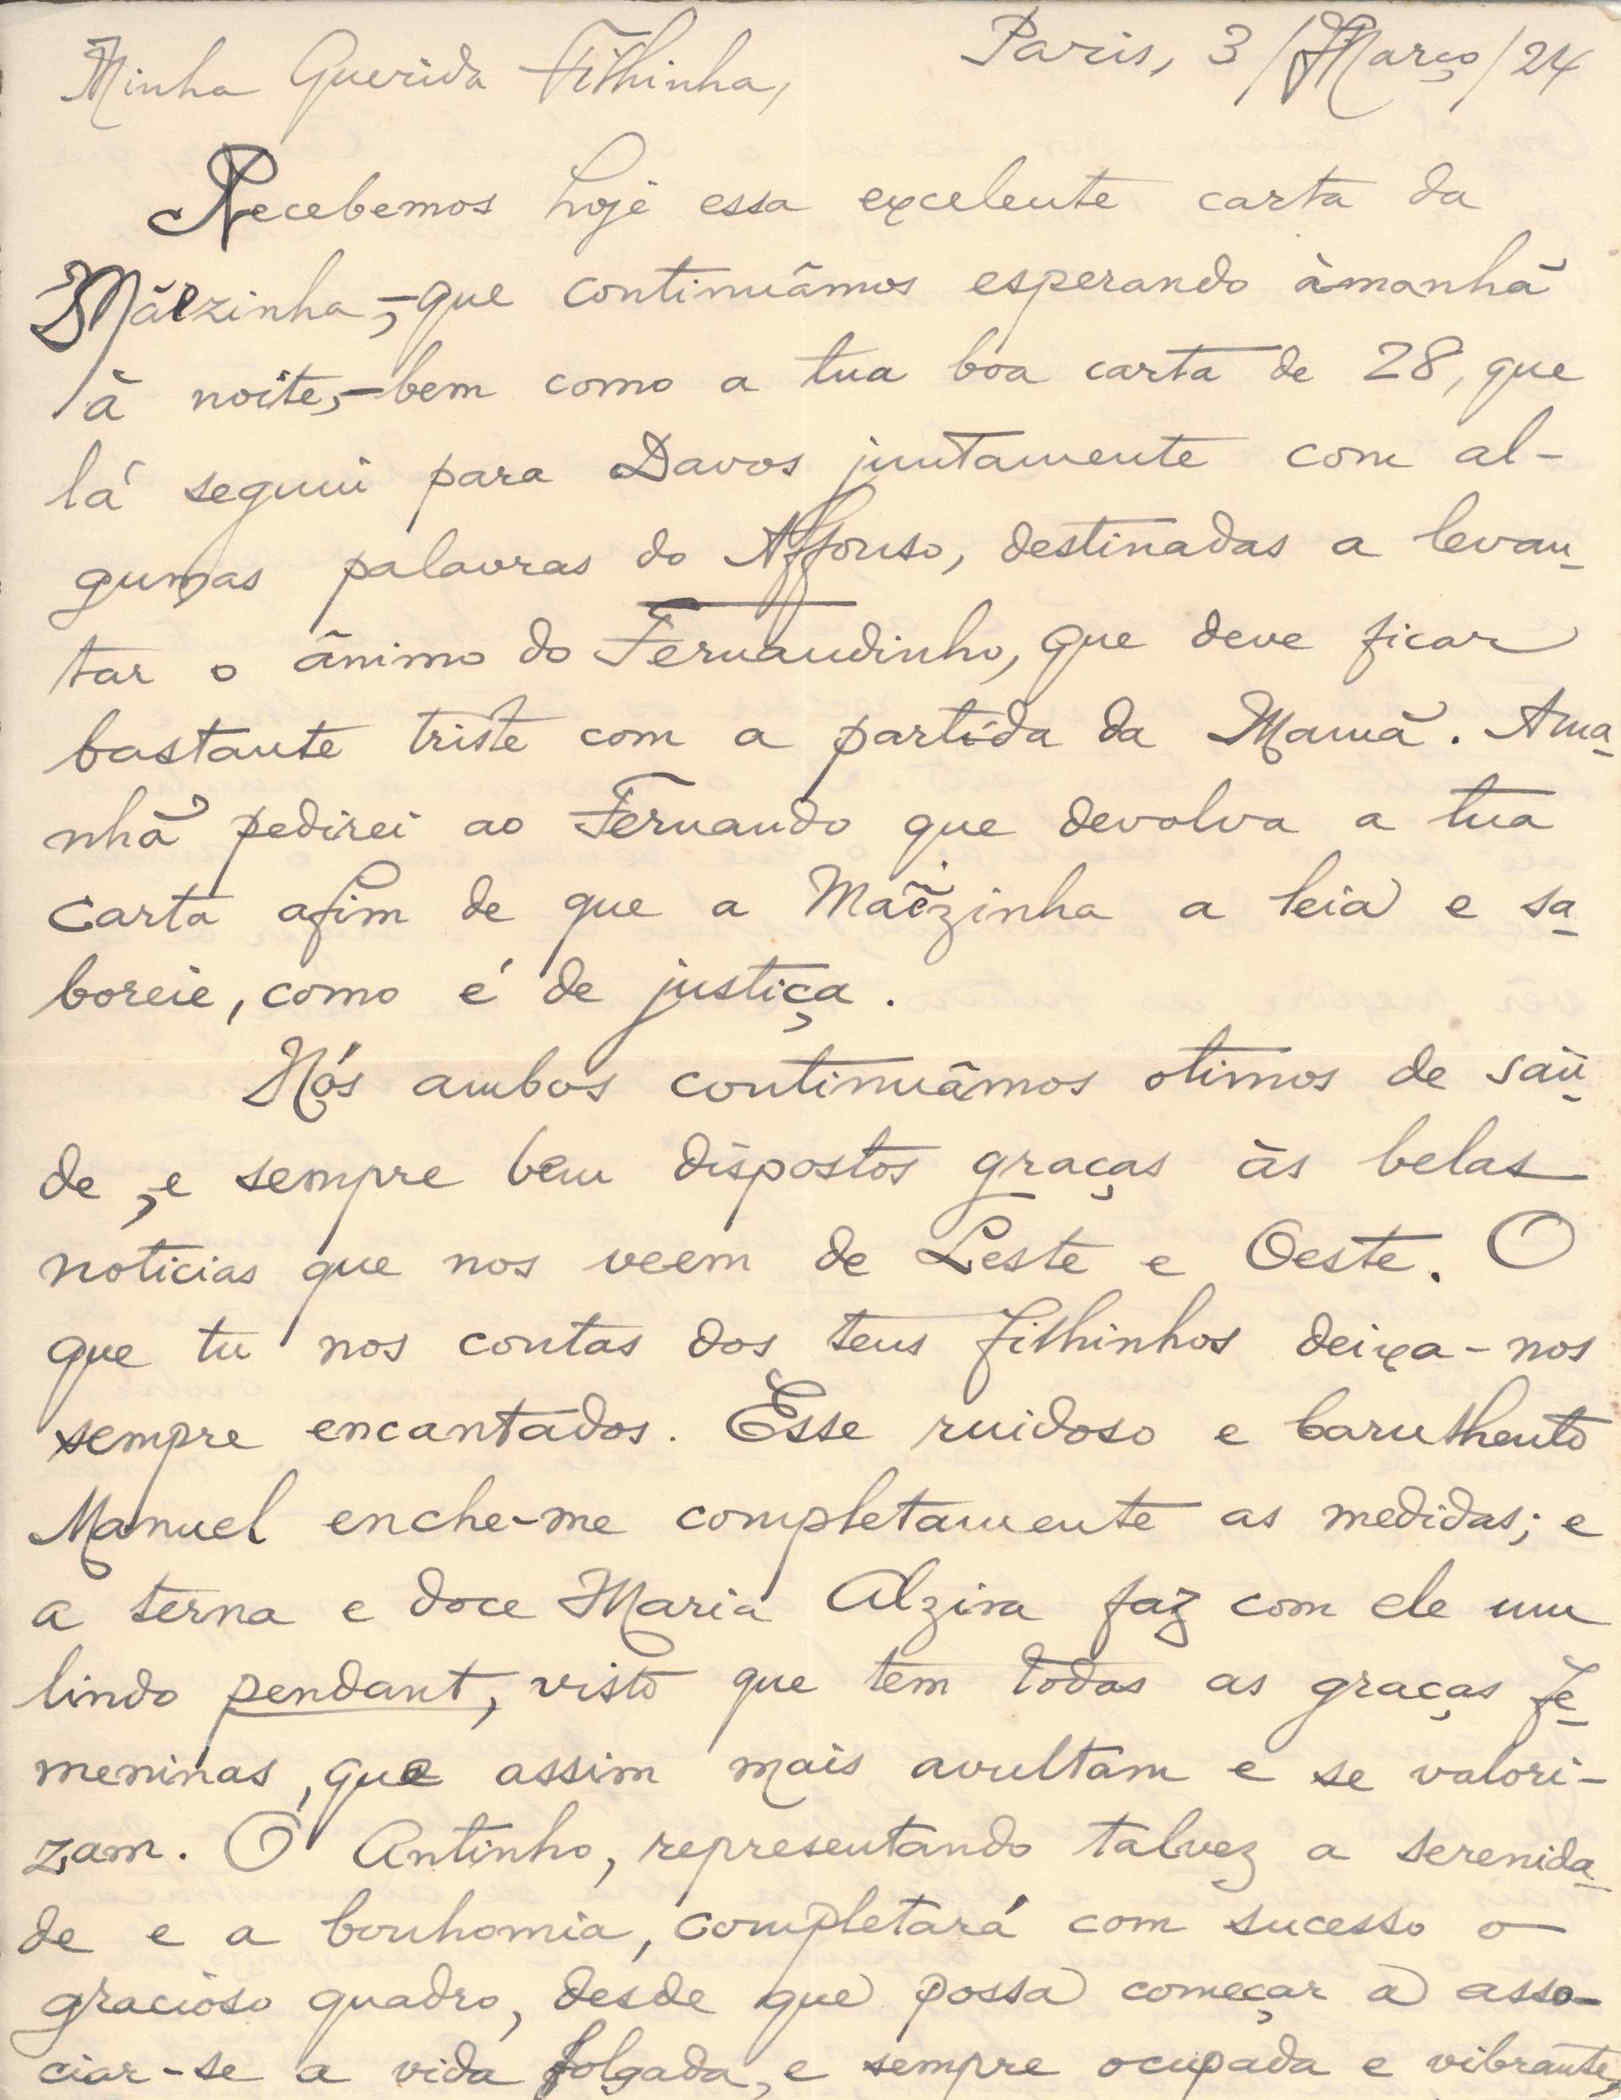 Paris, 3/Março/24
Minha Querida Filhinha,
Recebemos hoje essa excelente carta da
Mãezinha,-que continuâmos esperando àmanhã
à noite,-bem como a tua boa carta de 28, que
lá seguiu para Davos juntamente com al-
gumas palavras do Affonso, destinadas a levan-
tar o ânimo do Fernandinho, que deve ficar
bastante triste com a partida da Mamã. Ama-
nhã pedirei ao Fernando que devolva a tua
carta afim de que a Mãezinha a leia e sa-
boreie, como é de justiça.
Nós ambos continuâmos otimos de saù-
de, e sempre bem dispostos graças às belas
noticias que nos veem de Leste e Oeste. O
que tu nos contas dos teus filhinhos deixa-nos
sempre encantados. Esse ruidoso e barulhento
Manuel enche-me completamente as medidas; e
a terna e doce Maria Alzira faz com ele um
lindo pendant, visto que tem todas as graças fe-
meninas, que assim mais avultam e se valori-
zam. O Antinho, representando talvez a serenida-
de e a bonhomia, completará com sucesso o
gracioso quadro, desde que possa começar a asso-
ciar-se a vida folgada, e sempre ocupada e vibrante,